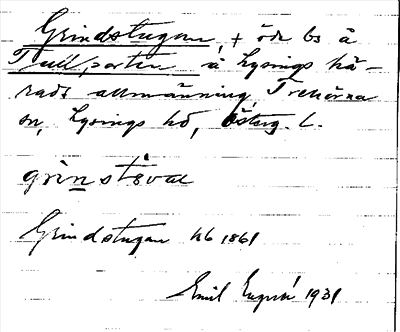 Grindstugan, + öde bs å
Tullporten å Lysings hä-
rads allmänning, Trehörna
sn, Lysings hd, Österg. L.
grinstɷva
Grindstugan hb 1861
Emil 1931